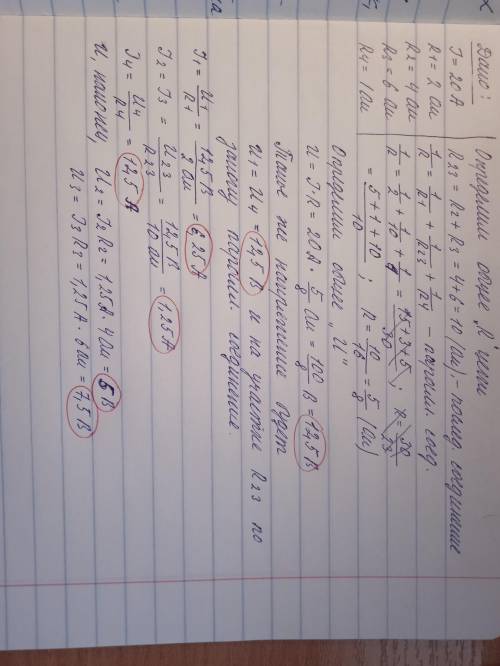 Дано:
J = 20 А
R1 = 2 Ом
R2 = 4 Ом
R3 = 6 Ом
R4 = 1 Ом
Определим общее "R" цепи
R23 = R2 + R3 = 4 + 6 = 10 (Ом) - послед. соединение
1/R = 1/R1 + 1/R23 + 1/R4 - паралл. соед.
1/R = 1/2 + 1/10 + 1/1 = 15+3+5/30 ; R = 30/23
= 5+1+10/10 ; R = 10/16 = 5/8 (Ом)
Определим общее "U"
U = J·R = 20А · 5/8 Ом = 100/8 В = 12,5 В
Такое же напряжение будет
U1 = U4 = 12,5 В и на участке R23 по
закону паралл. соединение.
J1 = U1/R1 = 12,5 В/2 Ом = 6,25 А
J2 = J3 = U23/R23 = 12,5 В/10 Ом = 1,25 А
J4 = U4/R4 = 12,5 А
И, наконец, U2 = J2R2 = 1,25А · 4 Ом = 5 В
U3 = J3R3 = 1,25А · 6 Ом = 7,5 В